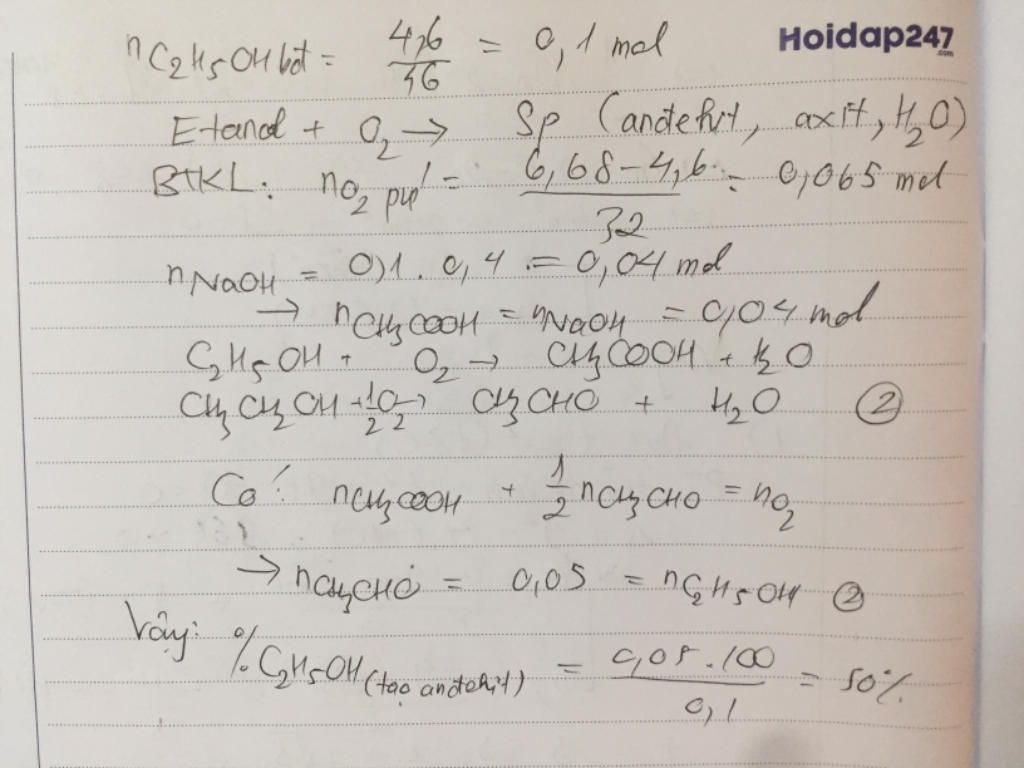 nC2H5OH bđ = 4,6/46 = 0,1 mol
Hoidap247
.com
Etanol + O2 → Sp (anđehit, axit, H2O)
BTKL: nO2 pư = (6,68-4,6)/32 = 0,065 mol
nNaOH = 0,1 . 0,4 = 0,04 mol
→ nCH3COOH = nNaOH = 0,04 mol
C2H5OH + O2 → CH3COOH + H2O
CH3CH2OH + 1/2O2 → CH3CHO + H2O ②
Có: nCH3COOH + 1/2 nCH3CHO = nO2
→ nCH3CHO = 0,05 = nC2H5OH ②
Vậy: %C2H5OH (tạo anđehit) = 0,05.100/0,1 = 50%